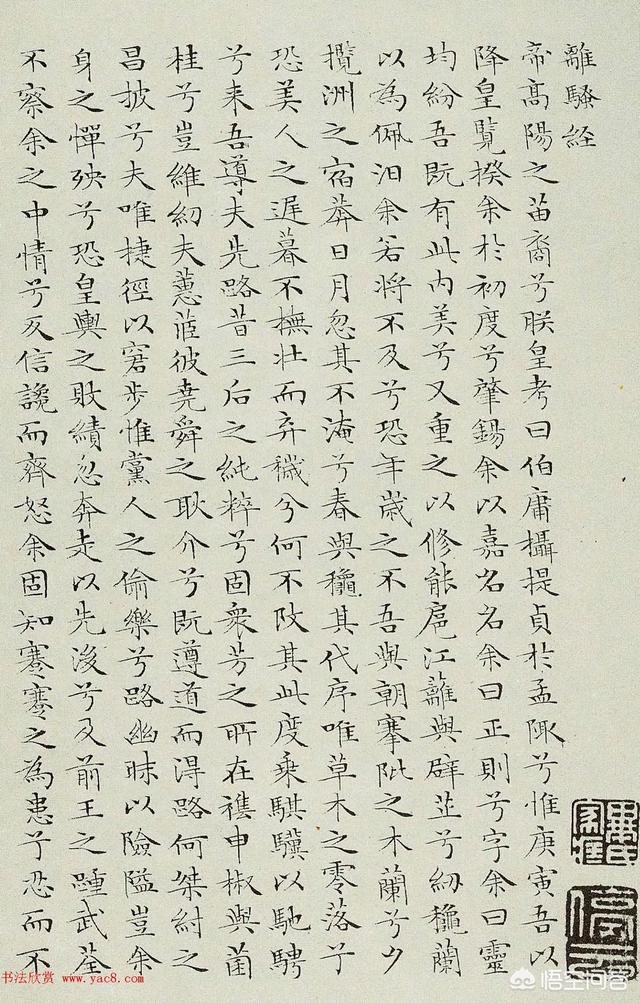 離騷経
帝高陽之苗裔兮朕皇考曰伯庸攝提貞於孟陬兮惟庚寅吾以
降皇覽揆余於初度兮肇錫余以嘉名名余曰正則兮字余曰靈
均紛吾既有此內美兮又重之以修能扈江蘺與辟芷兮紉穐蘭
以為佩汨余若將不及兮恐年歲之不吾與朝搴阰之木蘭兮夕
攬洲之宿莽日月忽其不淹兮春與穐其代序唯草木之零落兮
恐美人之遲暮不撫壯而弃穢兮何不改其此度乗騏驥以馳騁
兮来吾導夫先路昔三后之純粹兮固衆芳之所在襍申椒與菌
桂兮豈維紉夫蕙茝彼堯舜之耿介兮既遵道而得路何桀紂之
昌披兮夫唯捷徑以窘步惟黨人之偷樂兮路幽昧以險隘豈余
身之憚殃兮恐皇輿之敗績忽奔走以先後兮及前王之踵武荃
不察余之中情兮反信讒而齊怒余固知謇謇之為患兮忍而不
书法欣赏 www.yac8.com
悟空问答